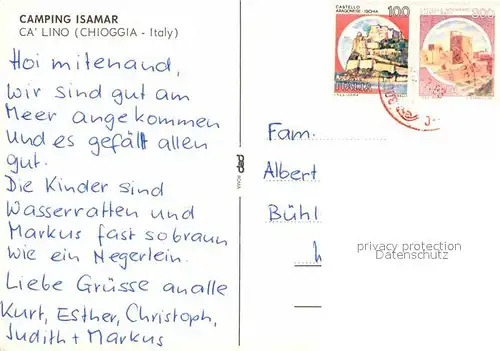 CAMPING ISAMAR
CA' LINO (CHIOGGIA - Italy)
Hoi mitenand,
Wir sind gut am
Meer angekommen
Und es gefällt allen
gut.
Die Kinder sind
Wasserratten und
Markus fast so braun
wie ein Negerlein.
Liebe Grüsse an alle
Kurt, Esther, Christoph,
Judith + Markus
CASTELLO
ARAGONESE - ISCHIA
100
ITALIA
300
Fam.
Albert
Bühl
privacy protection
Datenschutz
ROMA